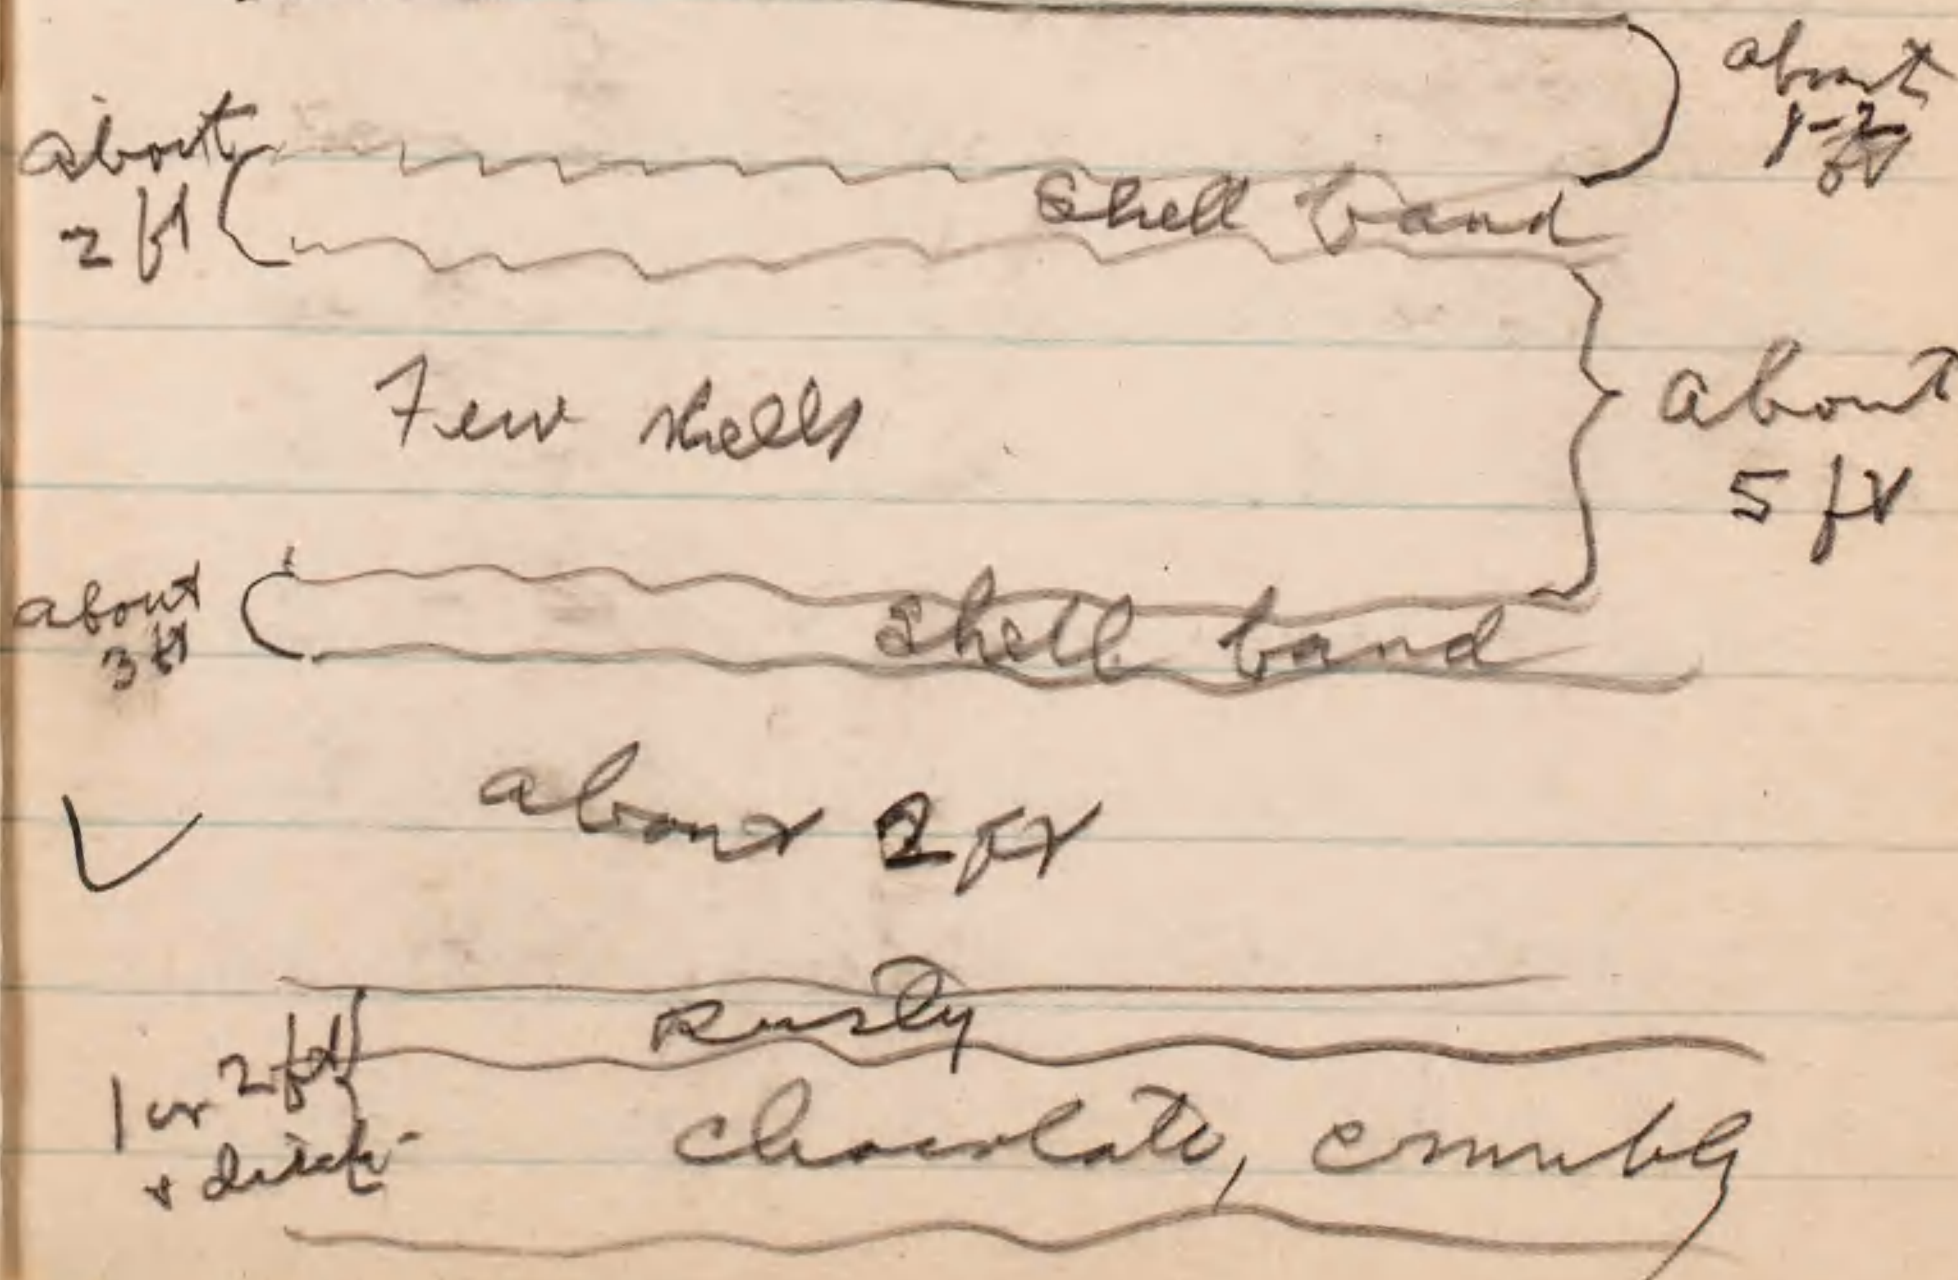 about
1-2
ft
about
2 ft
Shell band
Few shells
about
5 ft
about
3 ft
Shell band
about 2 ft
Rusty
1 or 2 ft
+
chocolate, crumbly